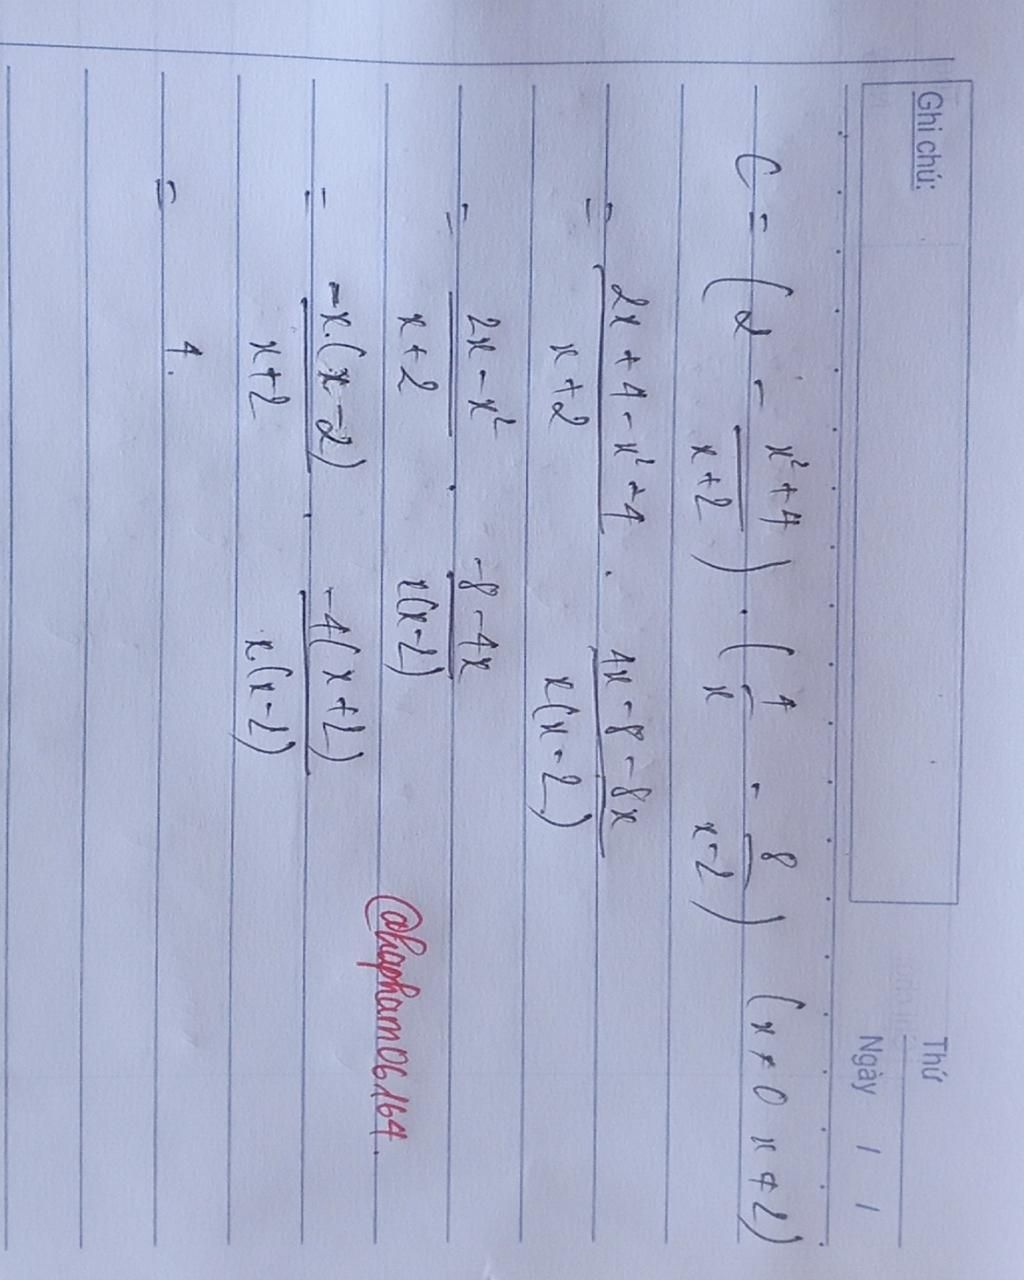 Ghi chú:
Thứ
Ngày / /
C = (2 - \frac{x²+4}{x+2}) . (\frac{4}{x} - \frac{8}{x-2}) (x ≠ 0 x ≠ 2)
= \frac{2x + 4 - x² - 4}{x+2} . \frac{4x - 8 - 8x}{x(x-2)}
= \frac{2x - x²}{x+2} . \frac{-8 - 4x}{x(x-2)}
= \frac{-x.(x-2)}{x+2} . \frac{-4(x+2)}{x.(x-2)}
= 4.
@hapham06164.